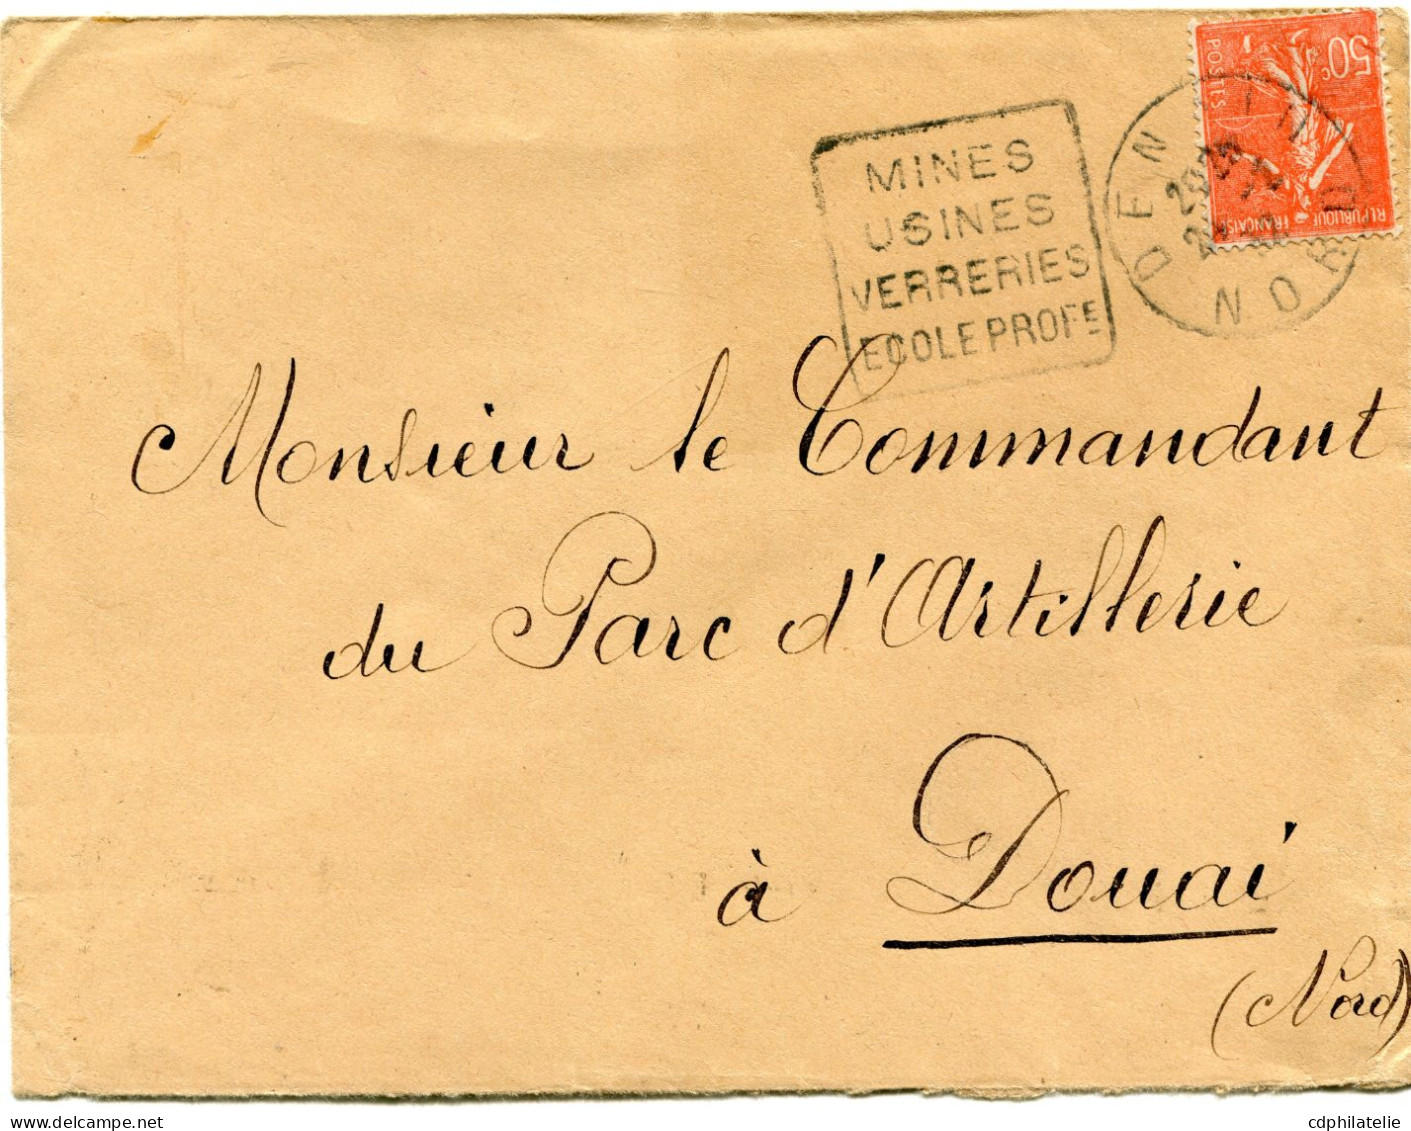 50c
POSTES
REPUBLIQUE FRANÇAISE
DENAIN
NORD
MINES
USINES
VERRERIES
ECOLE PROFE
Monsieur le Commandant
du Parc d'Artillerie
à Douai
(Nord)
cdphilatelie